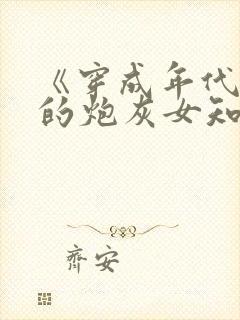 《穿成年代
的炮灰女知
齐安